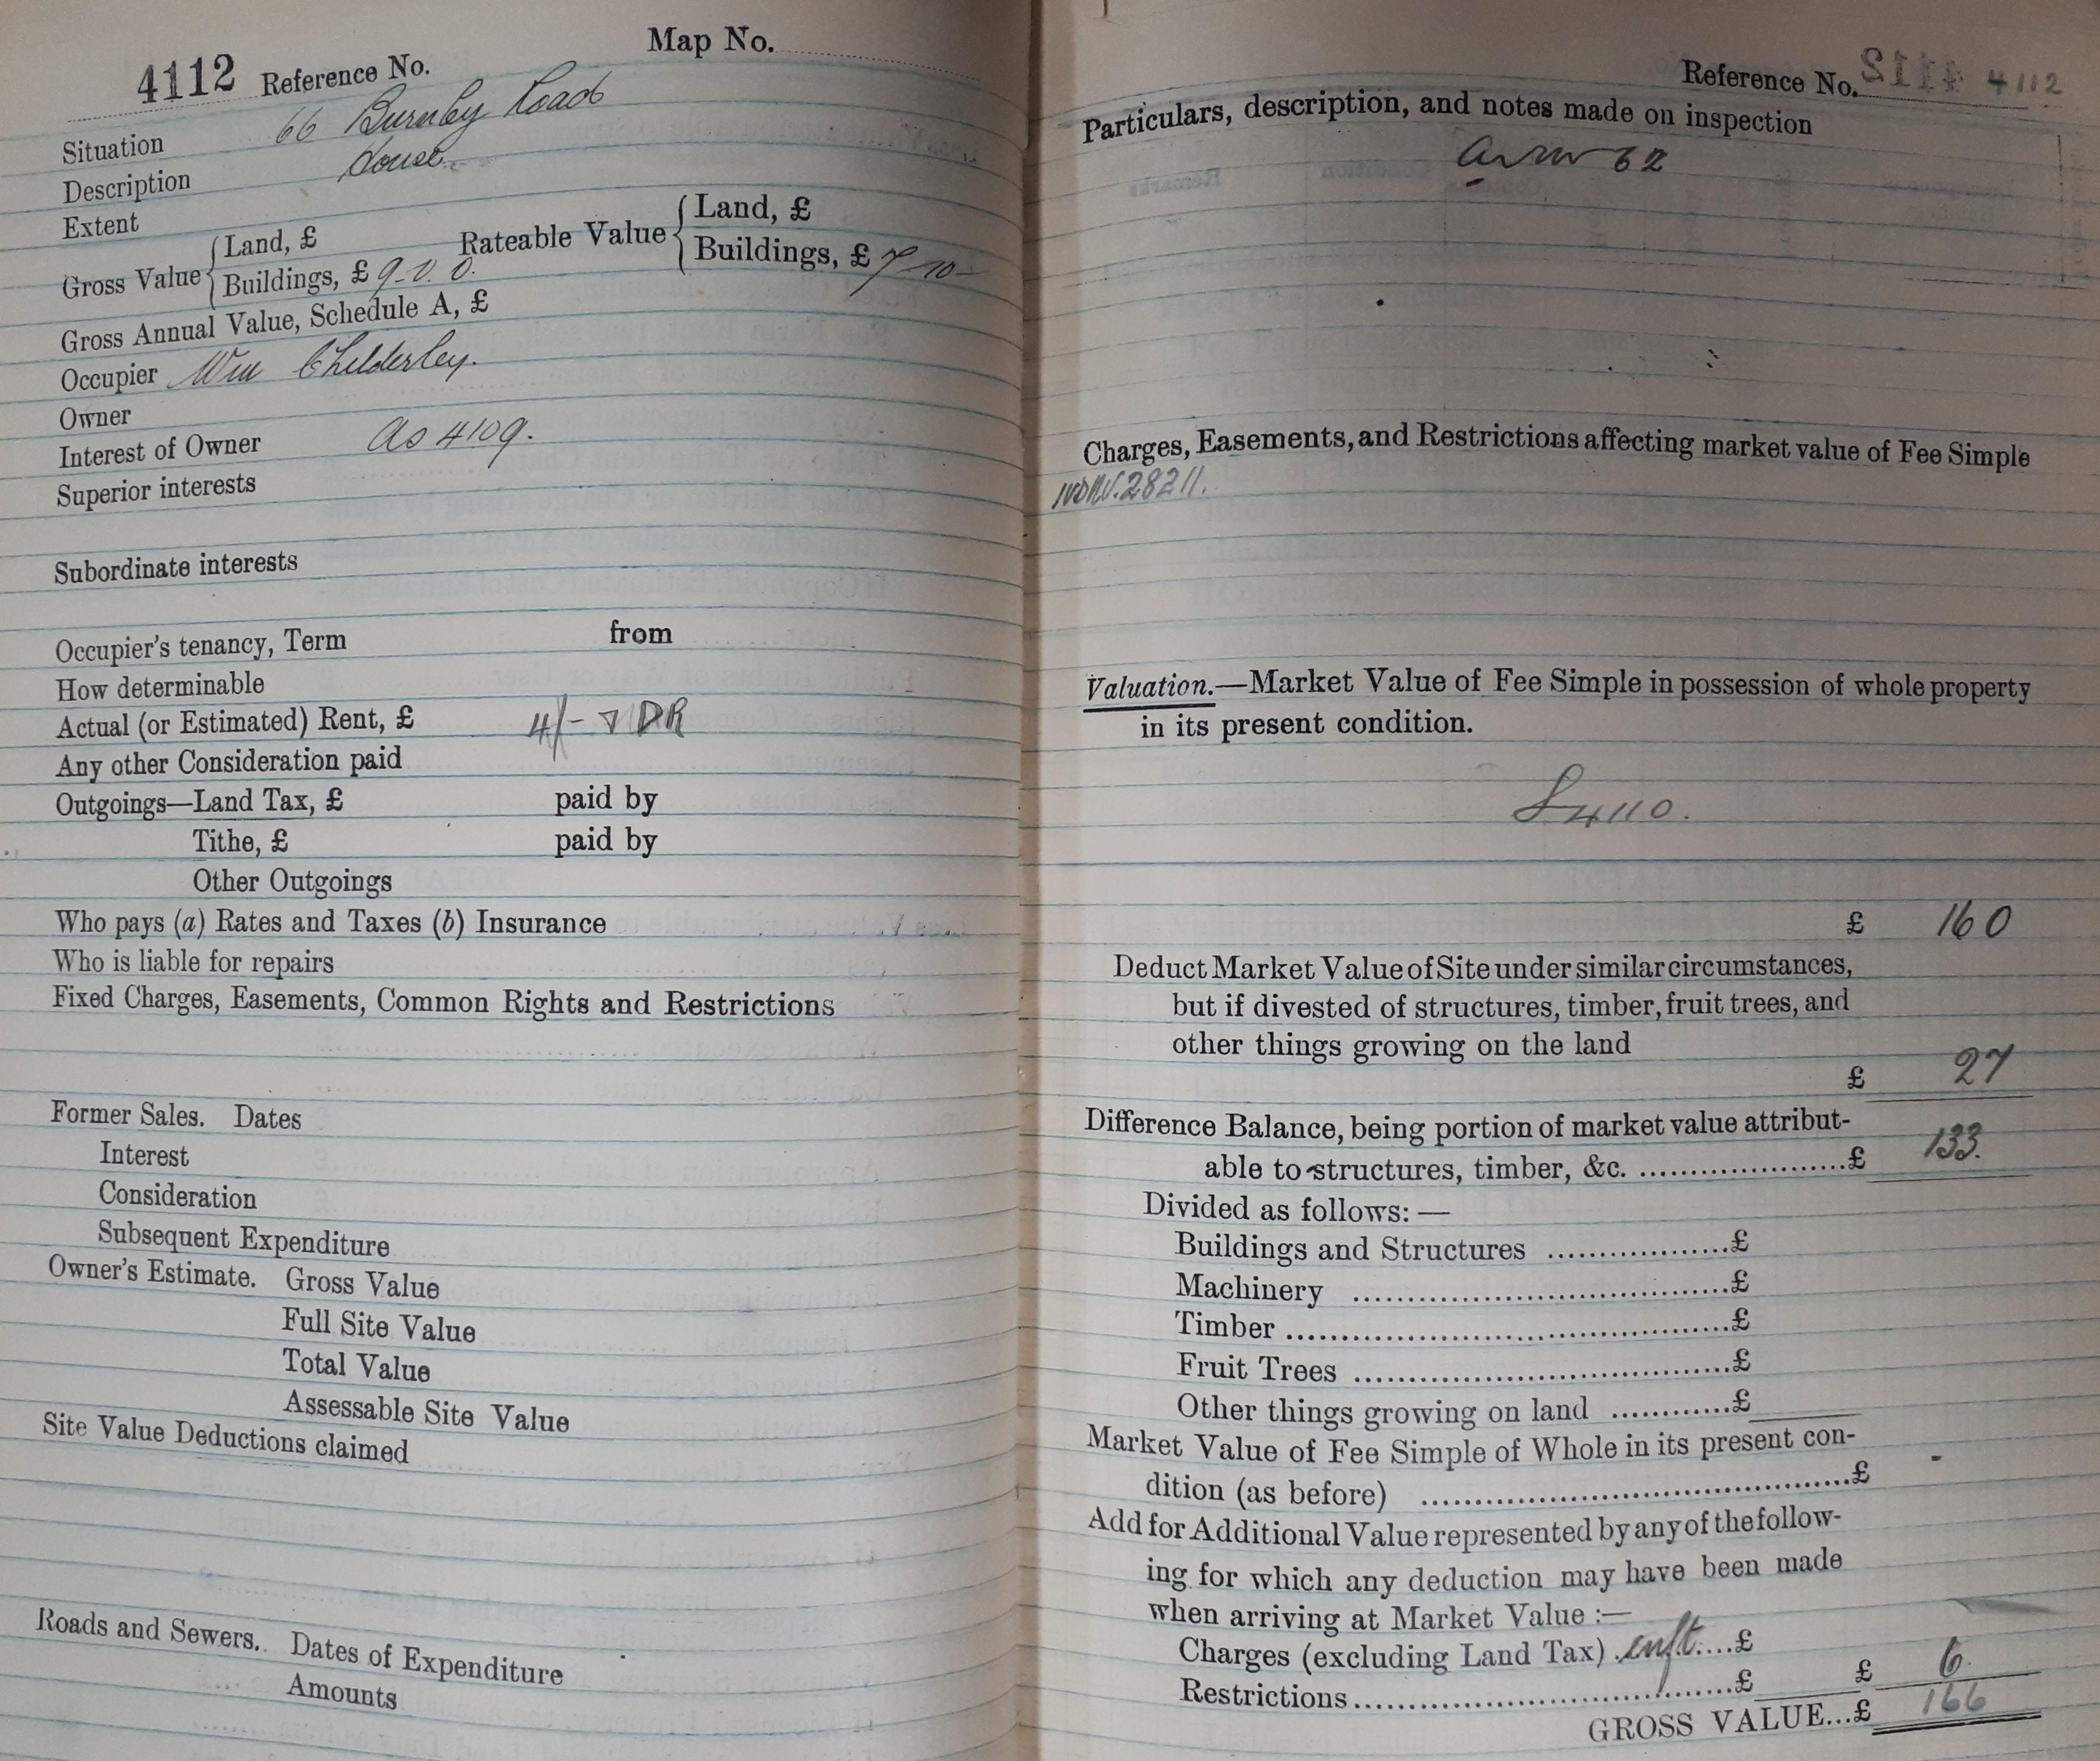 Map No.
4112 Reference No.
Situation 66 Burnby Road
Description House
Extent
Gross Value { Land, £ Rateable Value { Land, £
Buildings, £ 9. 0. 0. Buildings, £ 7-10-
Gross Annual Value, Schedule A, £
Occupier Wm Childerley.
Owner
Interest of Owner as 4109.
Superior interests
Subordinate interests
Occupier's tenancy, Term from
How determinable
Actual (or Estimated) Rent, £ 4/- DR
Any other Consideration paid
Outgoings—Land Tax, £ paid by
Tithe, £ paid by
Other Outgoings
Who pays (a) Rates and Taxes (b) Insurance
Who is liable for repairs
Fixed Charges, Easements, Common Rights and Restrictions
Former Sales. Dates
Interest
Consideration
Subsequent Expenditure
Owner's Estimate. Gross Value
Full Site Value
Total Value
Assessable Site Value
Site Value Deductions claimed
Roads and Sewers. Dates of Expenditure
Amounts
Reference No. 4112
Particulars, description, and notes made on inspection
62
Charges, Easements, and Restrictions affecting market value of Fee Simple
28211.
Valuation.—Market Value of Fee Simple in possession of whole property
in its present condition.
4110.
£ 160
Deduct Market Value of Site under similar circumstances,
but if divested of structures, timber, fruit trees, and
other things growing on the land
£ 27
Difference Balance, being portion of market value attribut-
able to structures, timber, &c. ...................£ 133.
Divided as follows:—
Buildings and Structures ..................£
Machinery ......................................£
Timber .............................................£
Fruit Trees ......................................£
Other things growing on land ............£
Market Value of Fee Simple of Whole in its present con-
dition (as before) ...........................................£
Add for Additional Value represented by any of the follow-
ing for which any deduction may have been made
when arriving at Market Value :—
Charges (excluding Land Tax) ....£
Restrictions......................................£ £ 6
GROSS VALUE...£ 166